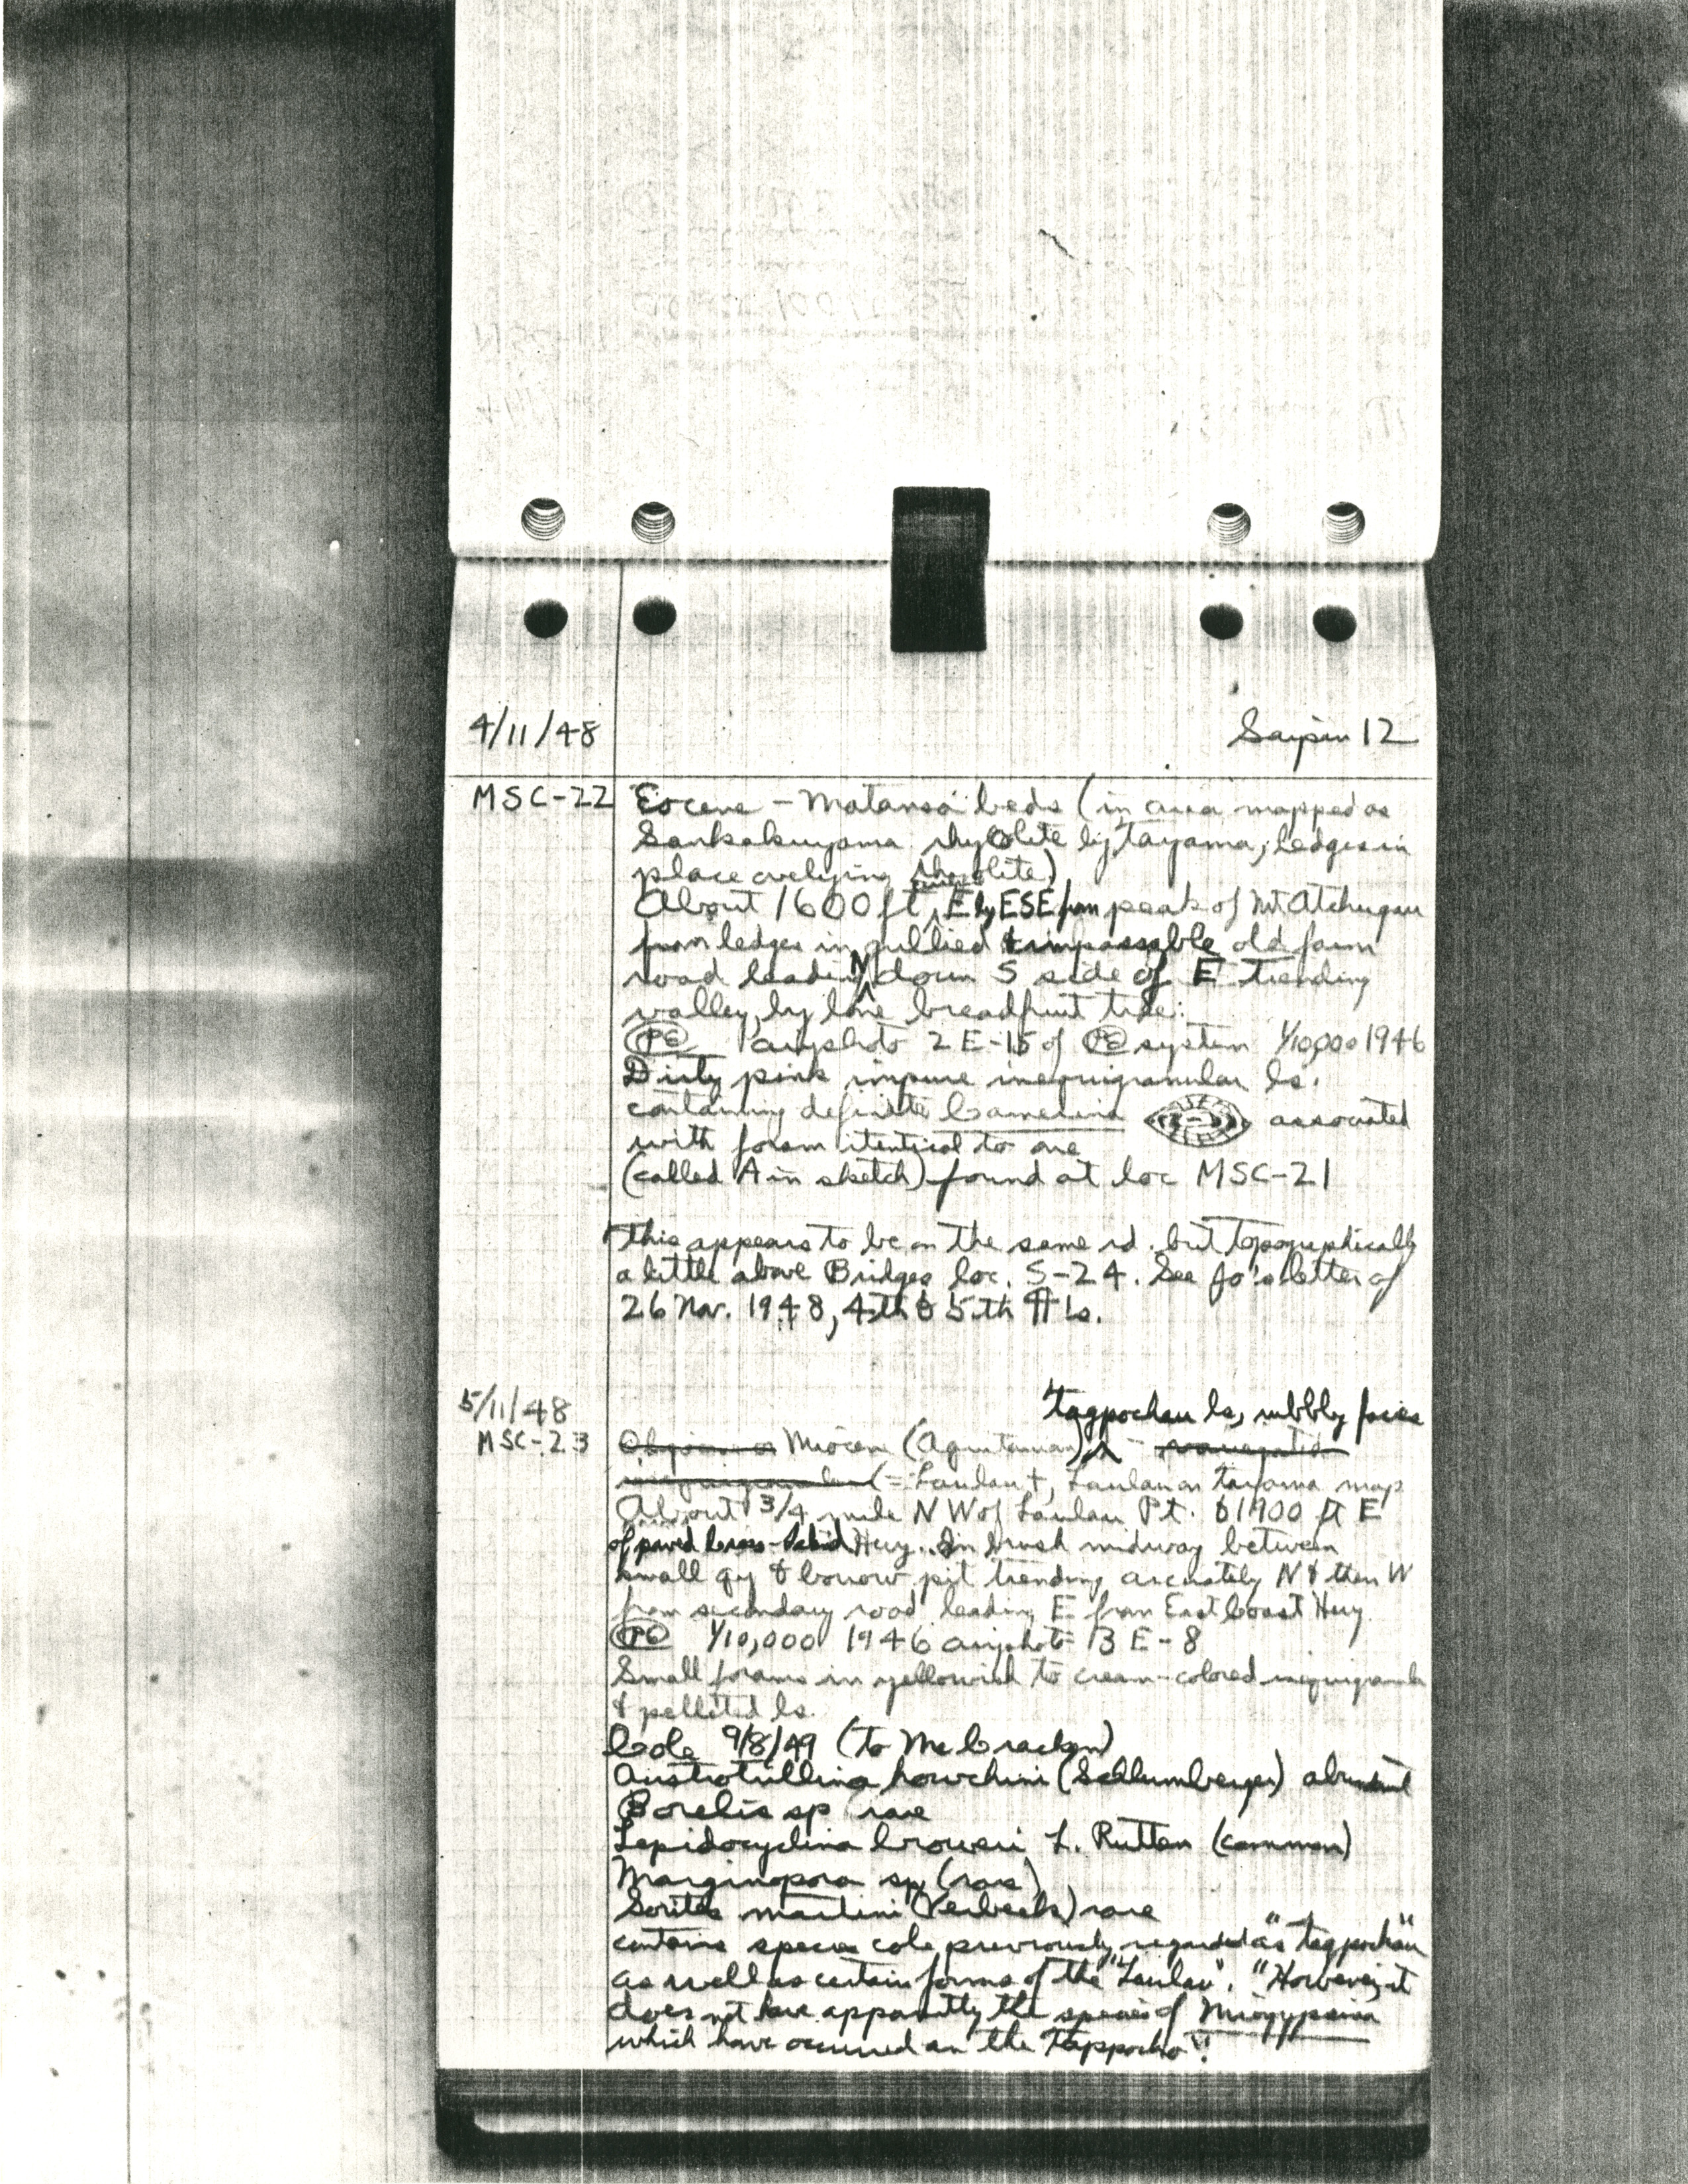 4/11/48
Saipan 12
MSC-22 Eocene - Matansa beds (in area mapped as
Sankakuyama rhyolite by Tayama, ledges in
place overlying rhyolite)
About 1600 ft, E by ESE from peak of Mt Atchugau
from ledges in gullied & impassable old farm
road leading N down S side of E trending
valley, by lone breadfruit tree.
PE airphoto 2 E-15 of PE system 1/10,000 1946
Dirty pink impure inequigranular ls.
containing definite Camerina associated
with foram itentical to one
(called A in sketch) found at loc MSC-21
This appears to be on the same rd. but topographically
a little above Bridges loc. S-24. See Jo's letter of
26 Nov. 1948, 4th & 5th ¶'s.
5/11/48
Tagpochau ls, rubbly facies
MSC-23 Oligocene or Miocene (Aquitanian) - variegated
inequigranular (= Laulau †, Laulau on Tayama map
About 3/4 mile NW of Laulau Pt. & 1900 ft E
of paved Hwy. In brush midway between
small qy & borrow pit trending arcuately N & then W
from secondary road leading E from East Coast Hwy
PE 1/10,000 1946 airphoto 13 E-8
Small forams in yellowish to cream-colored inequigranular
& pelleted ls.
Cole 9/8/49 (to McCracken)
Austrotrillina howchini (Schlumberger) abundant
Borelis sp rare
Lepidocyclina brouweri L. Rutten (common)
Marginopora sp (rare)
Sorites martini (Verbeek) rare
contains species Cole previously regarded as "Tagpochau"
as well as certain forms of the "Laulau". "However, it
does not have apparently the species of Miogypsina
which have occurred in the Tappocho".